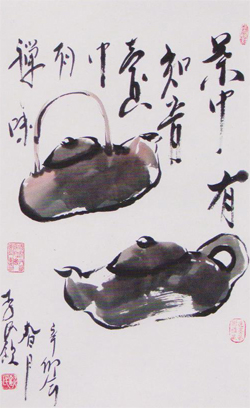 茶中有
知音
壶
中
有
禪味
辛卯
春月
李